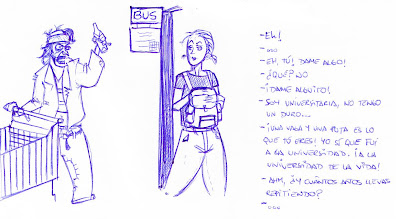 BUS
- EH!
- ...
- EH, TÚ! DAME ALGO!
- ¿QUÉ? NO
- ¡DAME ALGUITO!
- SOY UNIVERSITARIA, NO TENGO
UN DURO...
- ¡UNA VAGA Y UNA PUTA ES LO
QUE TÚ ERES! YO SÍ QUE FUI
A LA UNIVERSIDAD. ¡A LA
UNIVERSIDAD DE LA VIDA!
- AHM, ¿Y CUÁNTOS AÑOS LLEVAS
REPITIENDO?
- ...